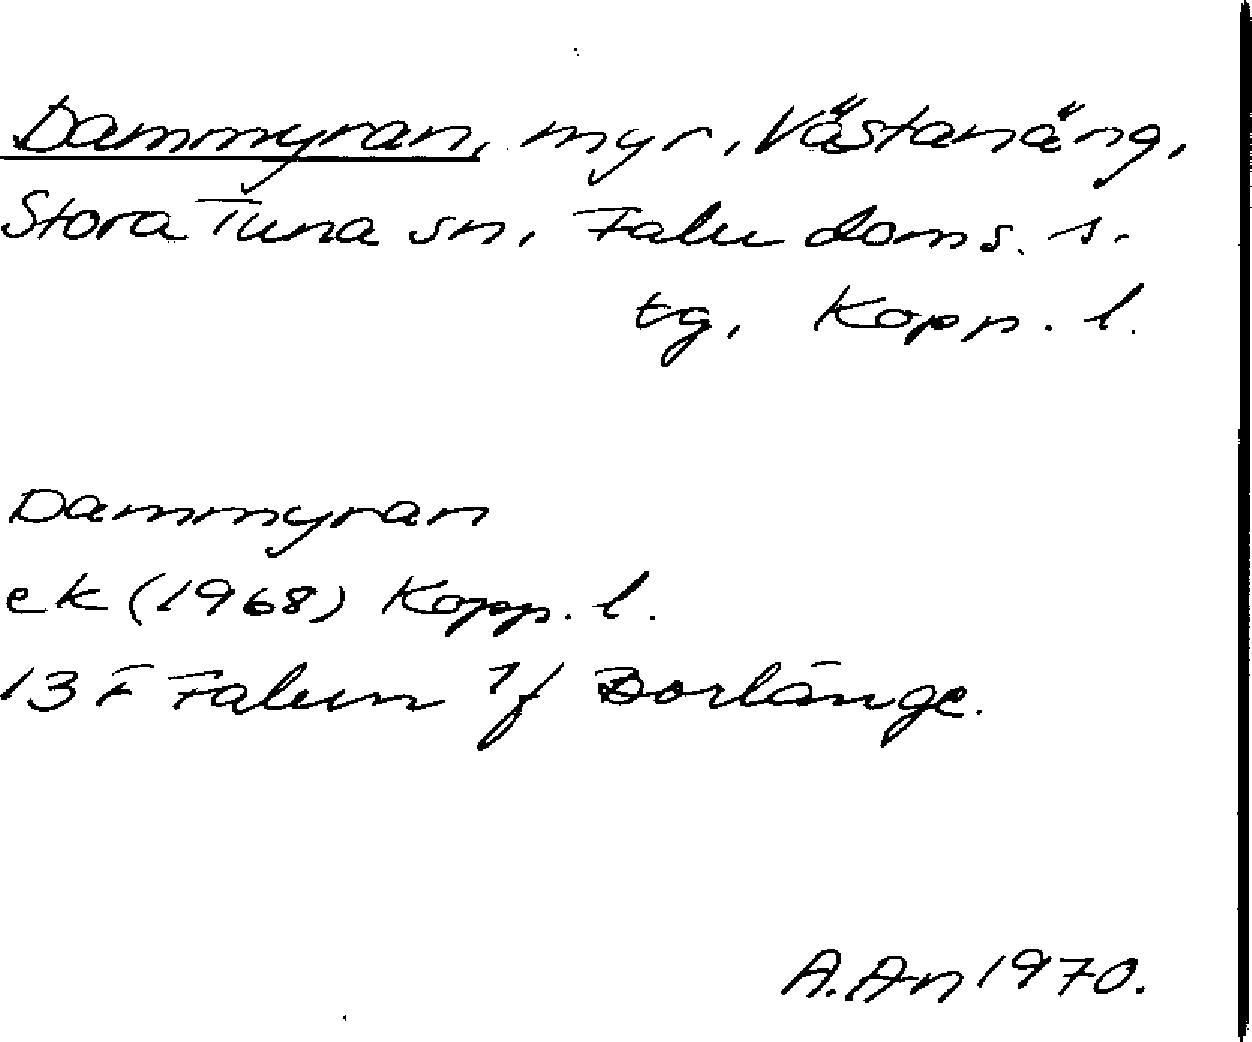 Dammyran, myr, Västanäng,
Stora Tuna sn, Falu doms. s.
tg, Kopp. l.
Dammyran
ek (1968) Kopp. l.
13 F Falun 1f Borlänge.
A.An 1970.